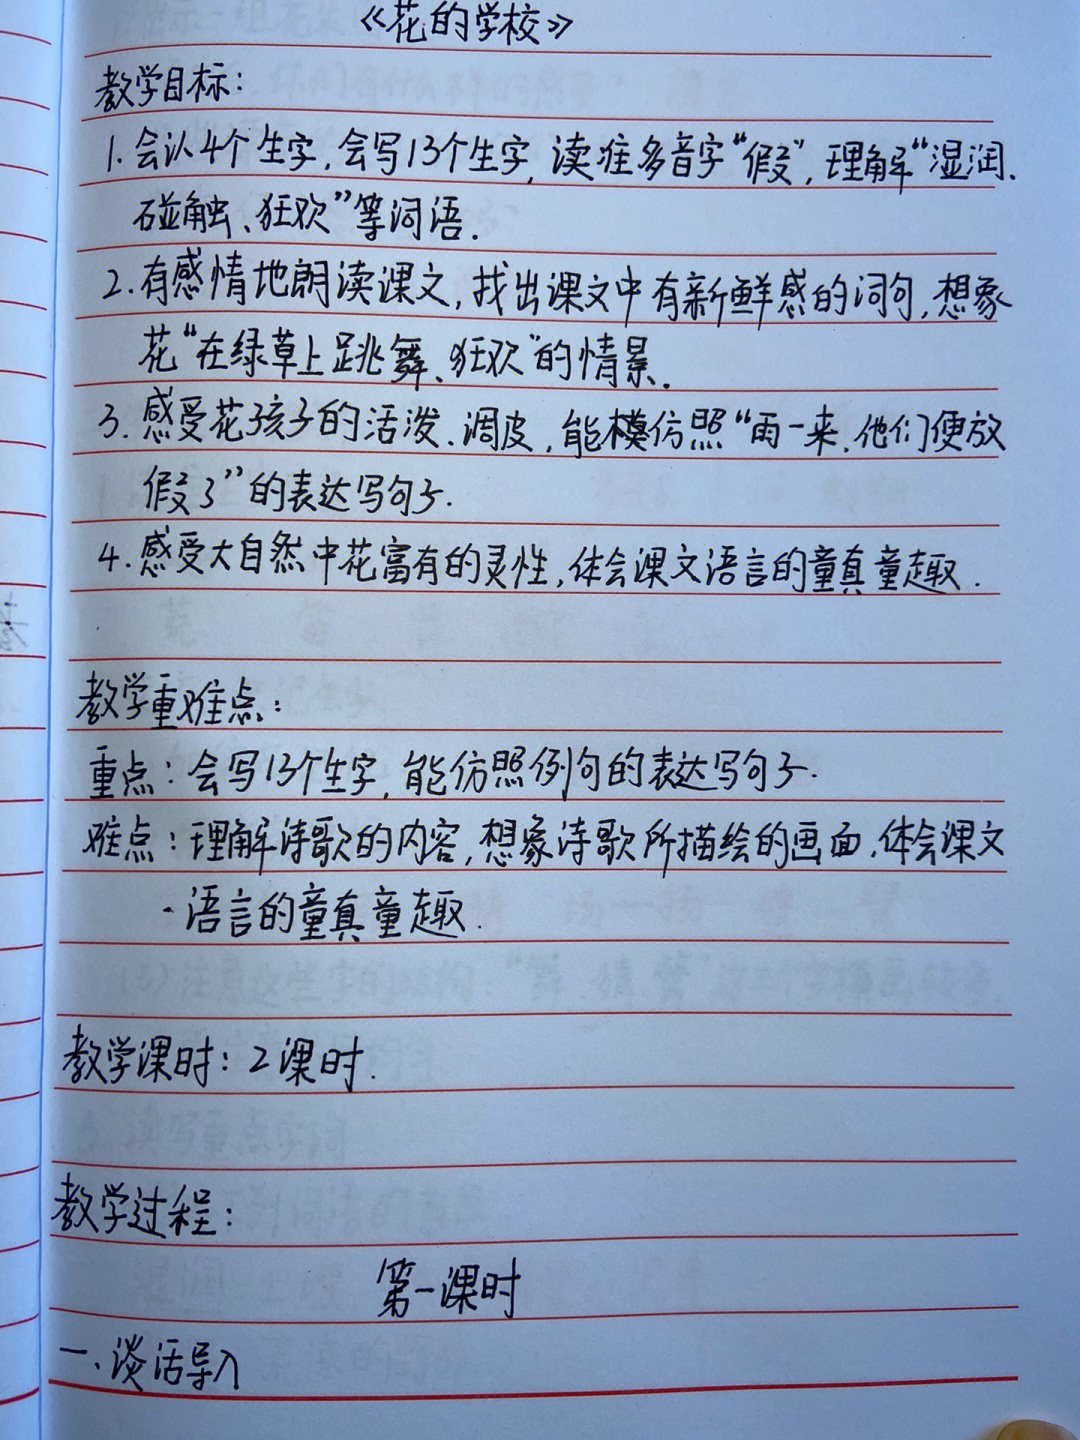 《花的学校》
教学目标:
1.会认4个生字,会写13个生字,读准多音字“假”,理解“湿润、
碰触、狂欢”等词语.
2.有感情地朗读课文,找出课文中有新鲜感的词句,想象
花“在绿草上跳舞、狂欢”的情景.
3.感受花孩子的活泼、调皮,能模仿照“雨一来,他们便放
假了”的表达写句子.
4.感受大自然中花富有的灵性,体会课文语言的童真童趣.
教学重难点:
重点:会写13个生字,能仿照例句的表达写句子.
难点:理解诗歌的内容,想象诗歌所描绘的画面,体会课文
语言的童真童趣.
教学课时:2课时.
教学过程:
第一课时
一、谈话导入